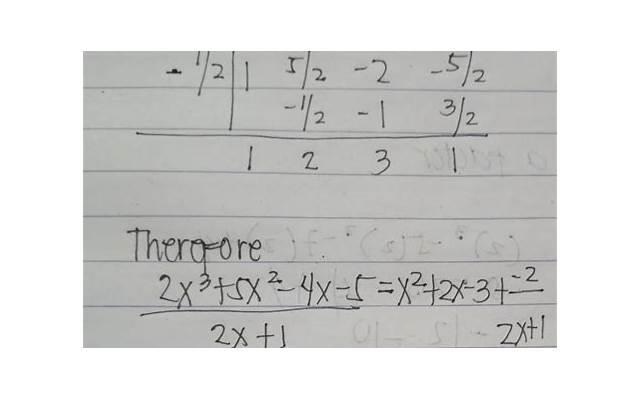 - 1/2 | 1 5/2 -2 -5/2
-1/2 -1 3/2
1 2 3 1
Therefore
2x³+5x²-4x-5 = x²+2x-3+ -2
2x+1 2x+1